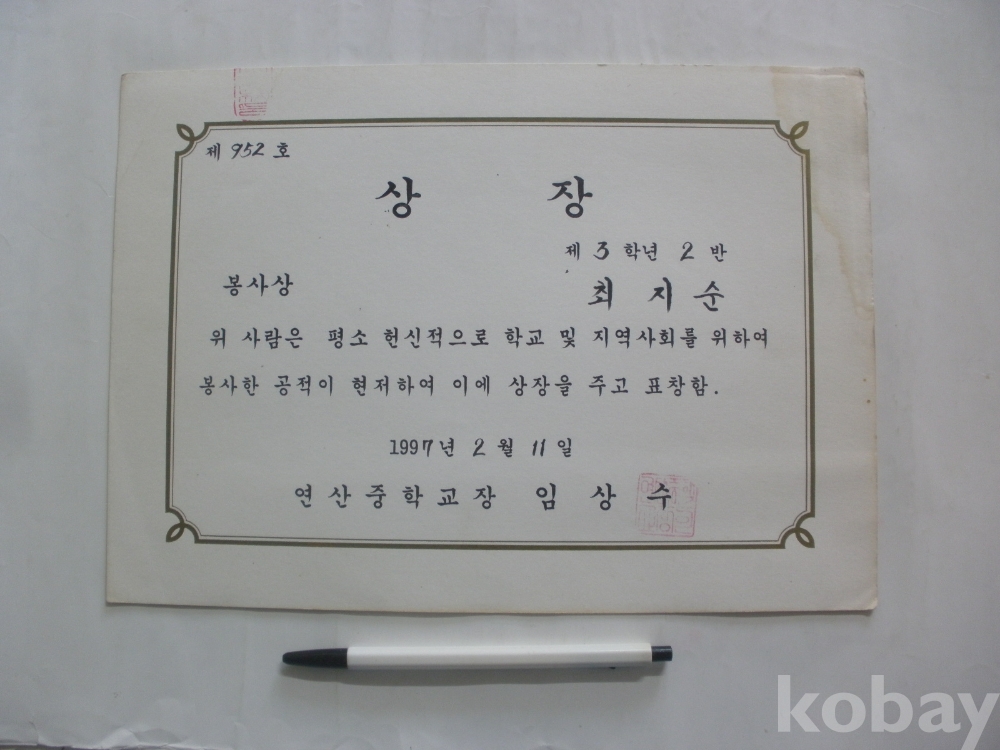 제 952 호
상 장
제 3 학년 2 반
봉사상
최 지 순
위 사람은 평소 헌신적으로 학교 및 지역사회를 위하여
봉사한 공적이 현저하여 이에 상장을 주고 표창함.
1997년 2 월 11 일
연산중학교장 임 상 수
kobay